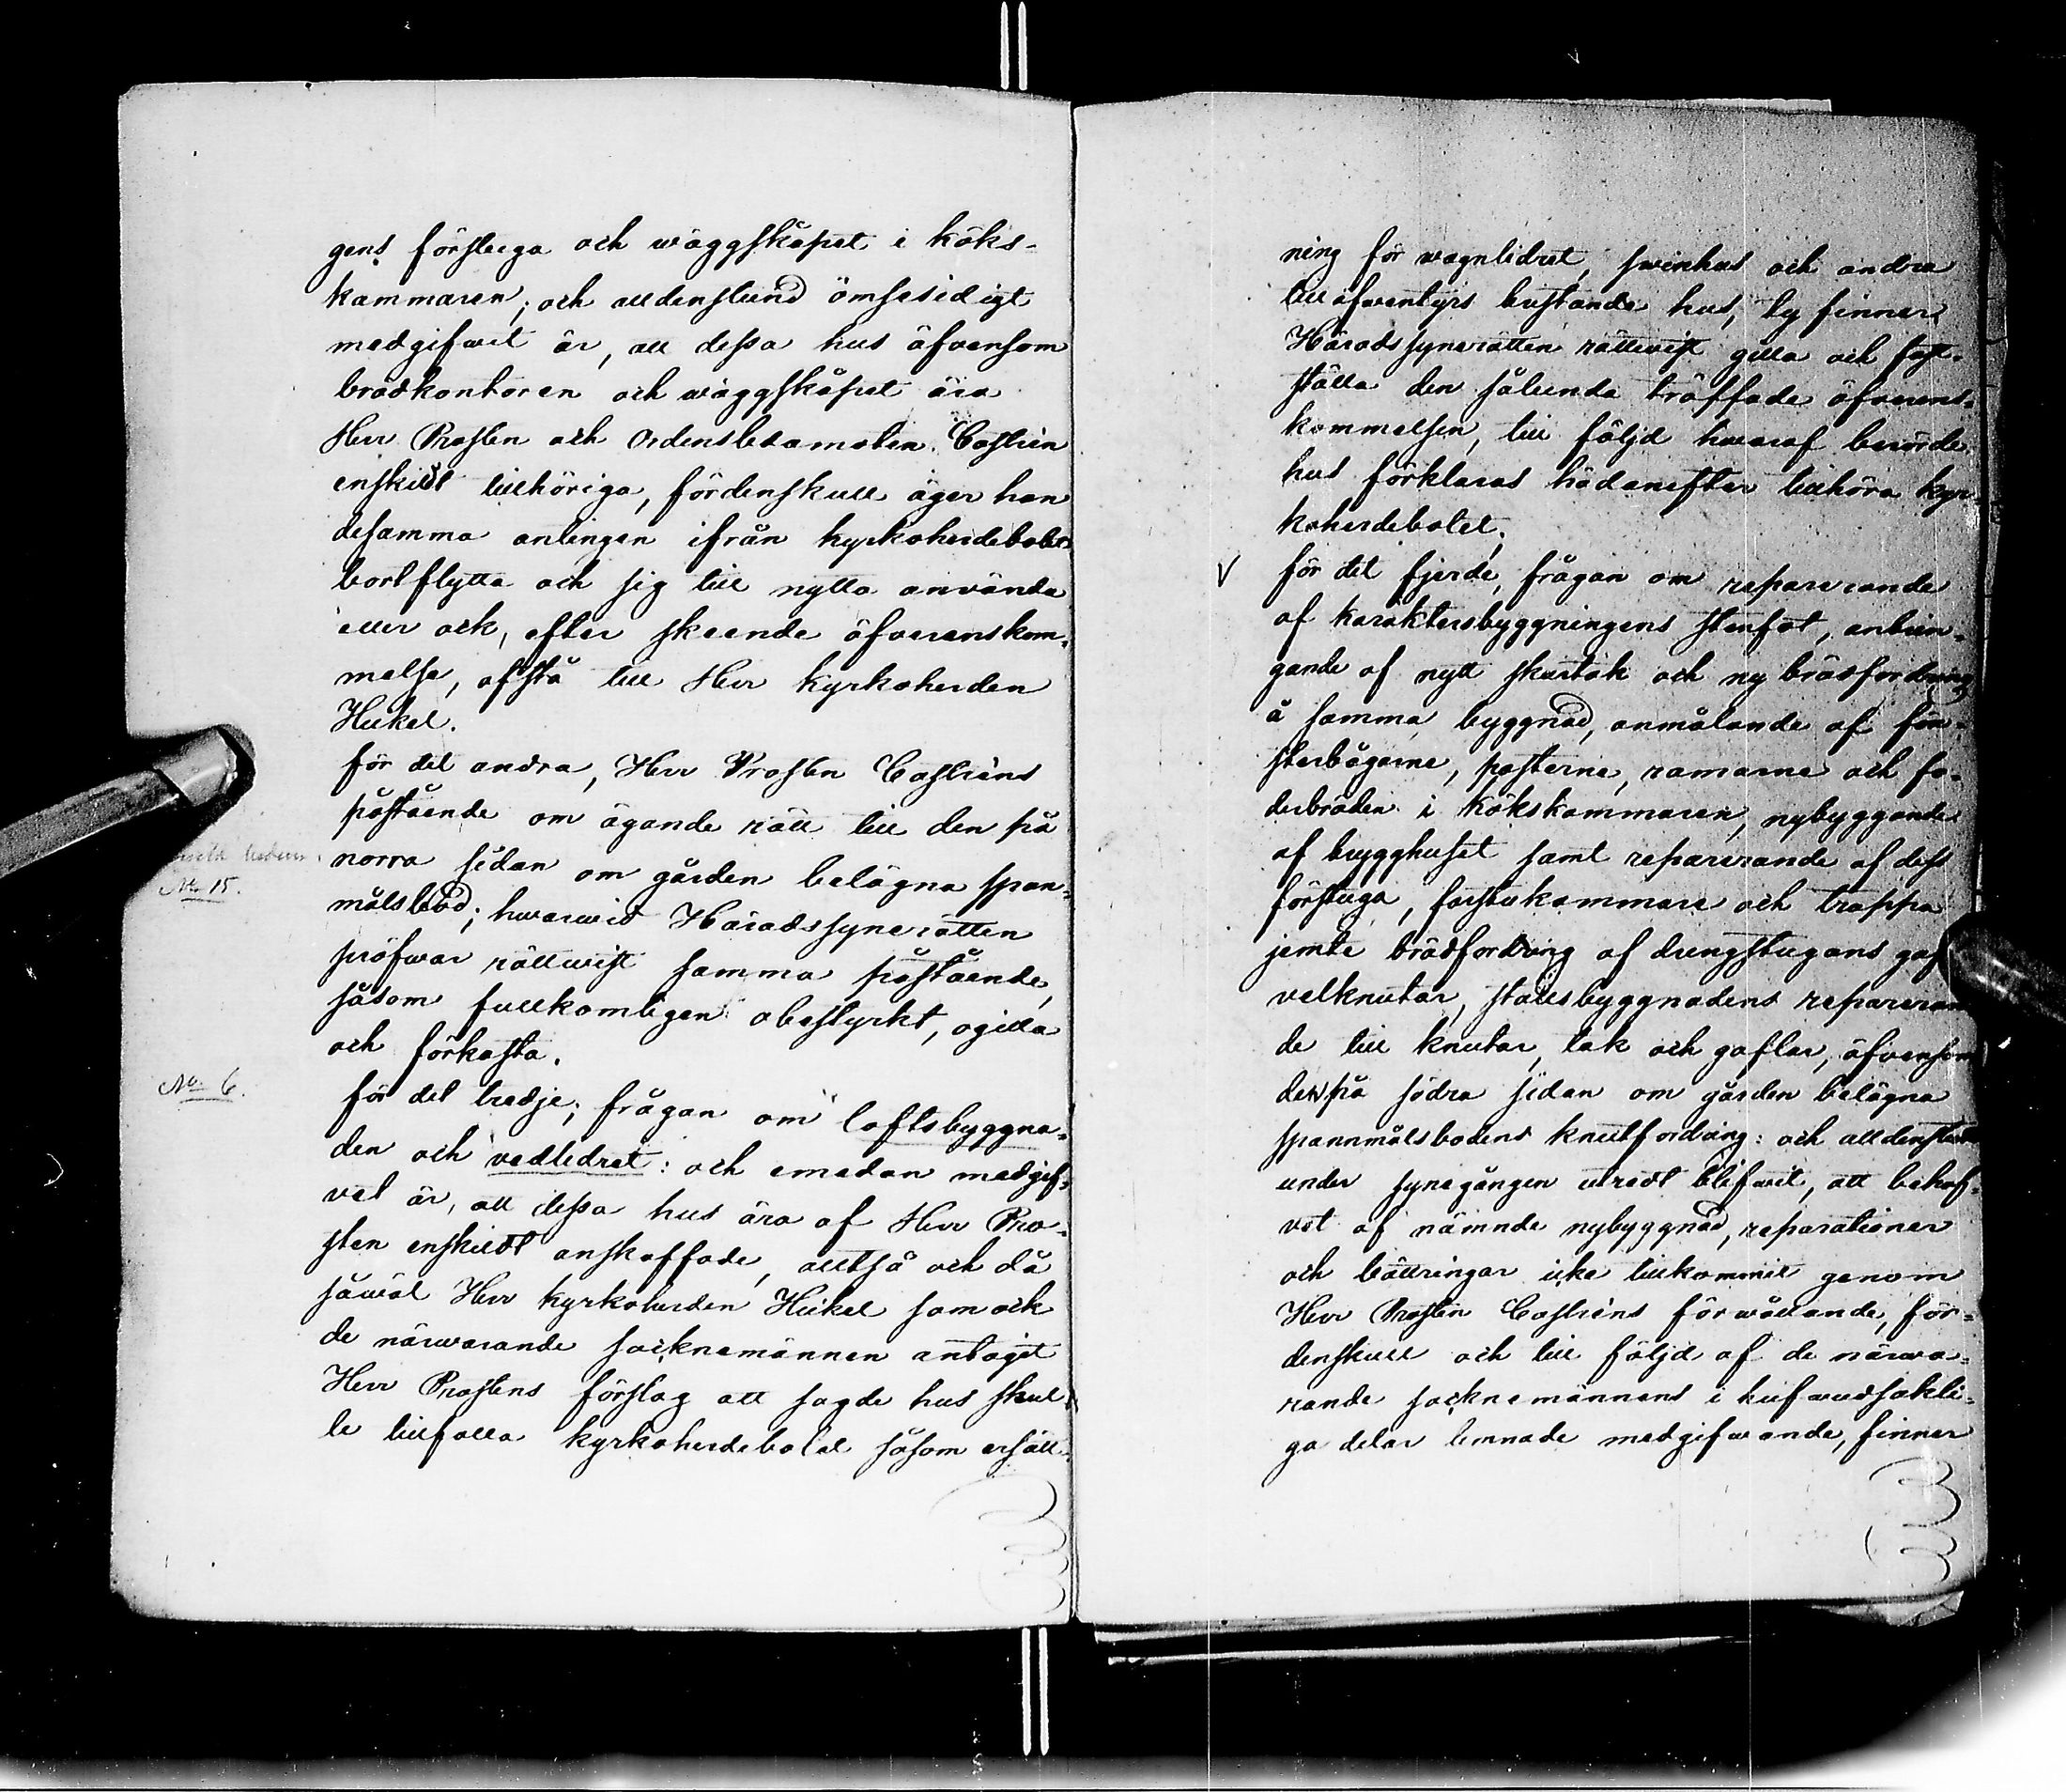 gens förstuga och wäggskåpet i köks-
kammaren; och alldenstund ömsesidigt
medgifwit är, att dessa hus äfvensom
brödkontoren och wäggskåpet ära
Herr Prosten och Ordensledamoten Castrén
enskildt tillhöriga, fördenskull äger han
desamma antingen ifrån kyrkoherdebolet
bortflytta och sig till nytta använda
eller ock, efter skeende öfverenskom-
melse, afstå till Herr Kyrkoherden
Heikel.
för det andra, Herr Prosten Castréns
påstående om ägande rätt till den på
norra sidan om gården belägna span-
målsbod; hwarwid Häradssynerätten
pröfwar rättwist samma påstående,
såsom fullkomligen obestyrkt, ogilla
och förkasta.
No 15.
No 6.
för det tredje; frågan om loftsbyggna-
den och vedlidret: och emedan medgif-
vet är, att dessa hus ära af Herr Pro-
sten enskildt anskaffade, alltså och då
såwäl Herr Kyrkoherden Heikel som ock
de närwarande socknemännen antagit
Herr Prostens förslag att sagde hus skul-
le tillfalla kyrkoherdebolet såsom ersätt-
ning för wagnlidret, swinhus och andra
till äfwentyrs bristande hus, ty finner
Häradssynerätten rättwist gilla och fast-
ställa den sålunda träffade öfverens-
kommelsen, till följd hwaraf berörde
hus förklaras hädanefter tillhöra kyr-
koherdebolet.
V för det fjerde, frågan om reparerande
af karaktersbyggningens stenfot, anbrin-
gande af nytt skurtak och ny brädfordring
å samma byggnad, anmålande af fön-
sterbågarne, posterne, ramarne och fo-
derbräden i kökskammaren, nybyggande
af brygghuset samt reparerande af dess
förstuga, farstukammare och trappa
jemte brädfordring af drengstugans gaf-
velknutar, stallsbyggnadens repareran
de till knutar, tak och gaflar, äfvensom
den på södra sidan om gården belägna
spannmålsbodens knutfordring: och alldenstund
under synegången utredt blifwit, att behof-
vet af nämnde nybyggnad, reparationer
och bättringar icke tillkommit genom
Herr Prosten Castréns förwållande, för-
denskull och till följd af de närwa-
rande socknemännens i hufwudsakli-
ga delar lemnade medgifwande, finner